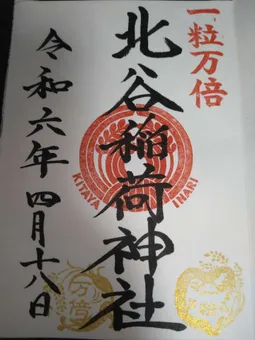 一粒万倍
北谷稲荷神社
KITAYA INARI
令和六年四月十八日
万倍